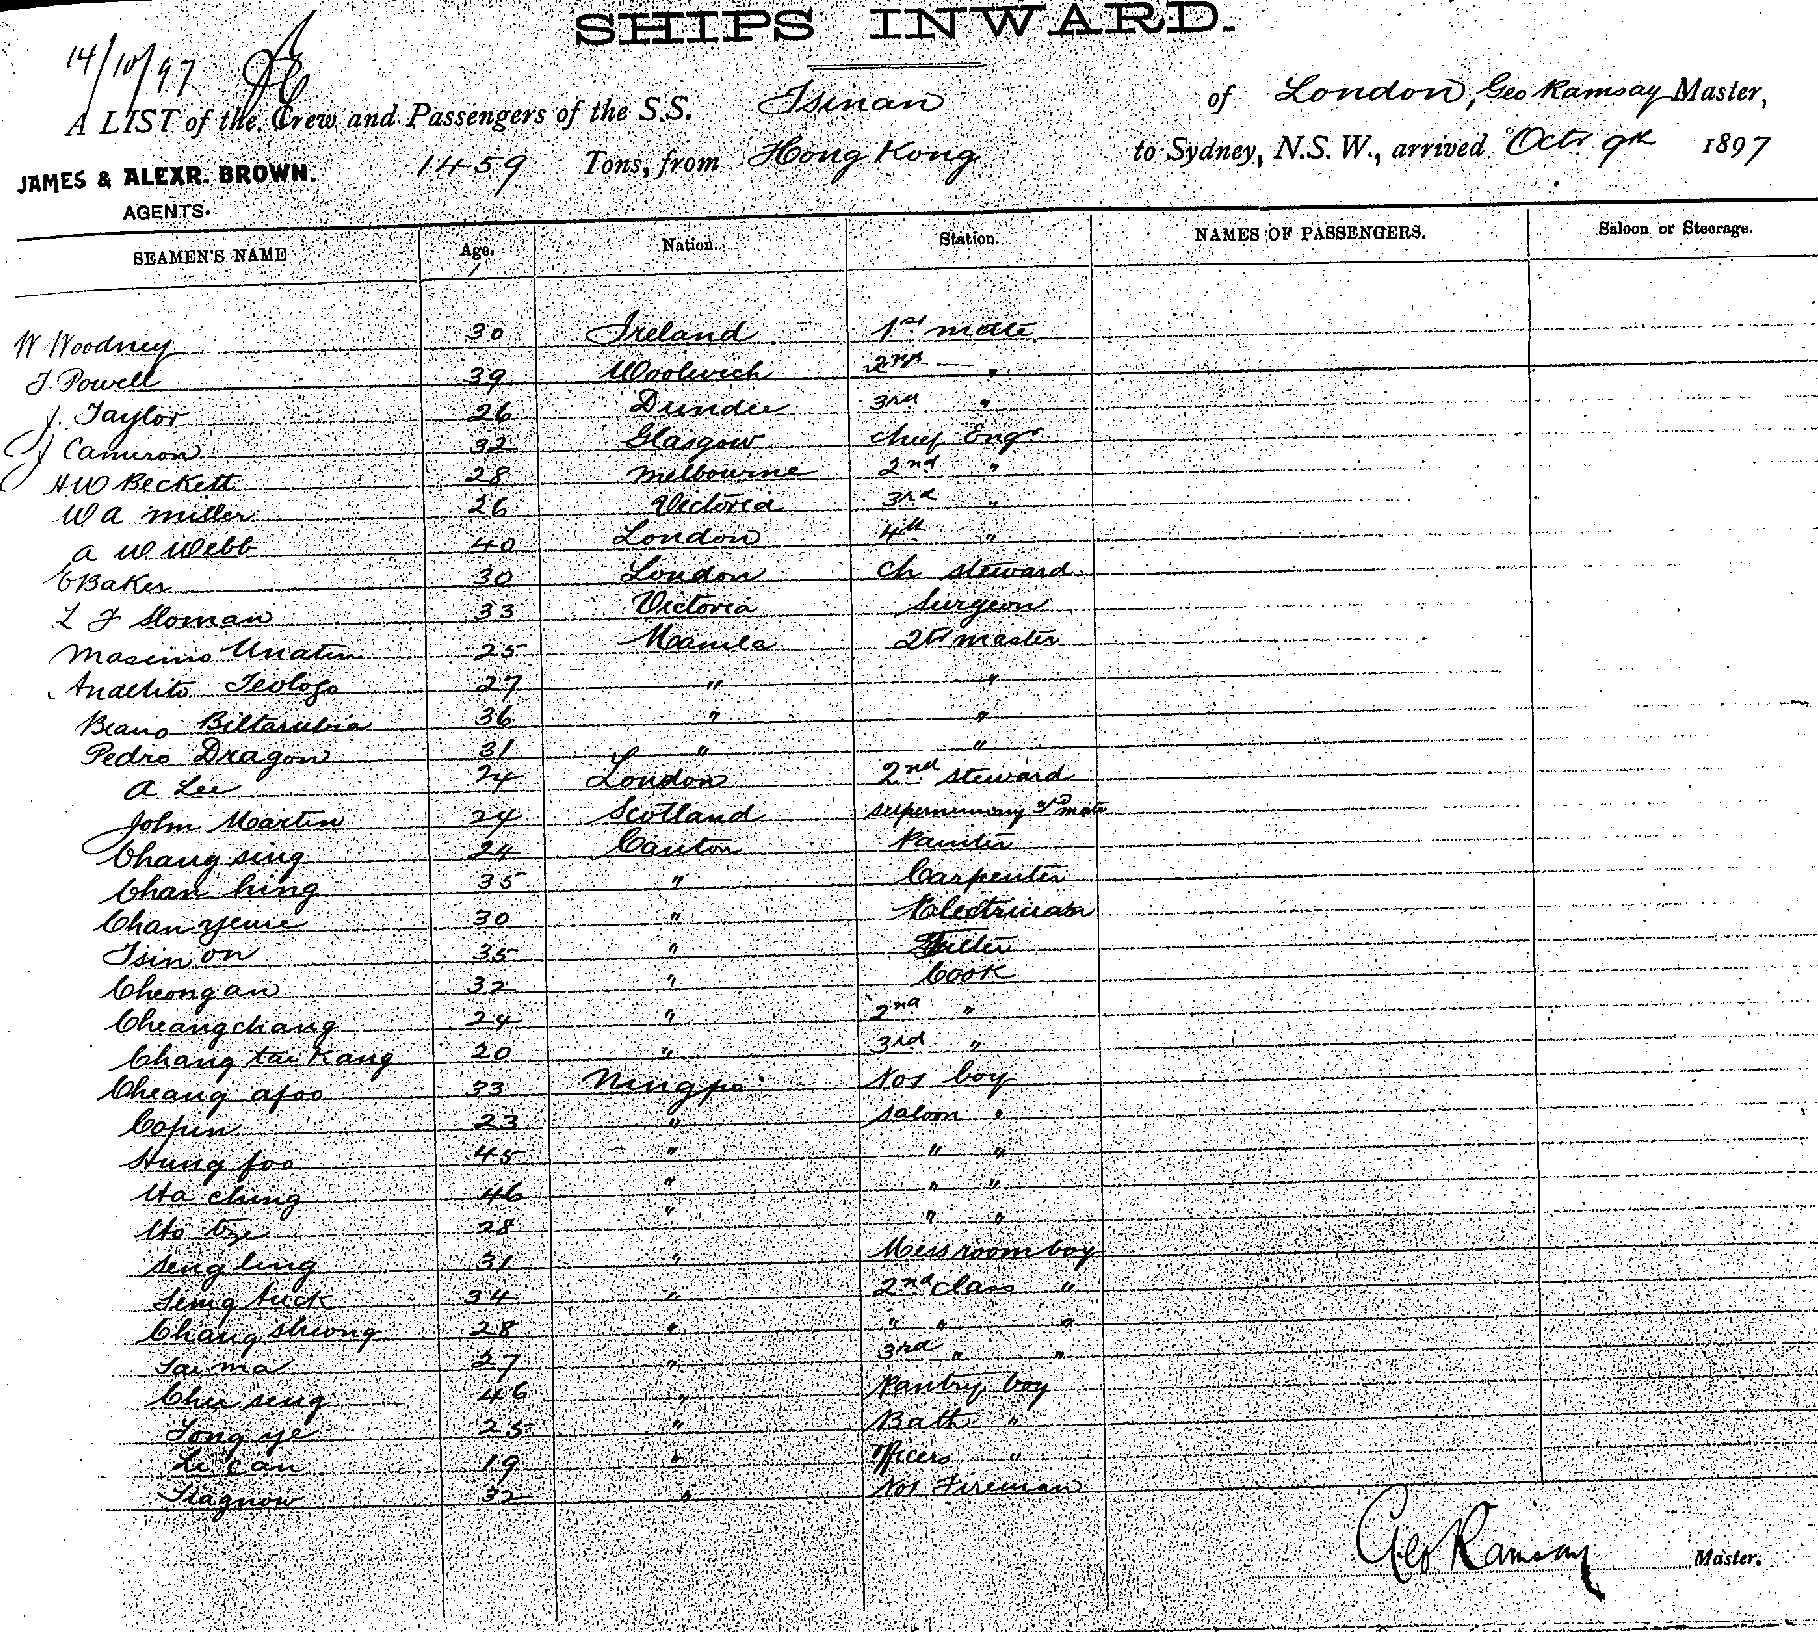 SHIPS INWARD.
14/10/97
A LIST of the Crew and Passengers of the S.S. Tsinan of London, Geo Ramsay Master,
JAMES & ALEXR. BROWN. 1459 Tons, from Hong Kong to Sydney, N.S.W., arrived Octr 9th 1897
AGENTS.
SEAMEN'S NAME Age. Nation. Station. NAMES OF PASSENGERS. Saloon or Steerage.
W Woodney 30 Ireland 1st mate
J. Powell 39 Woolwich 2nd "
J. Taylor 26 Dundee 3rd "
J Cameron 32 Glasgow chief Engr
H W Beckett 28 Melbourne 2nd "
W A Miller 26 Victoria 3rd "
A W Webb 40 London 4th "
E Baker 30 London Ch steward
L J Sloman 33 Victoria Surgeon
25 Manila 2tr master
Teologo 27 " "
36 " "
Pedro Dragon 31 " "
A Lee 24 London 2nd steward
John Martin 24 Scotland 3rd mate
Chang sing 24 Canton Painter
Chan hing 35 " Carpenter
Chan 30 " Electrician
Tsin on 35 "
Cheong an 32 " Cook
Cheang chang 24 " 2nd "
Chang tai Kang 20 " 3rd "
Cheang afoo 33 Ningpo No1 boy
23 " saloon "
Hung foo 45 " " "
Ho ching 46 " " "
Ho tze 28 " " "
Seng ling 31 " Mess room boy
tuck 34 " 2nd class "
Chang sheong 28 " " " "
Tai ma 27 " 3rd " "
seng 46 " Pantry boy
Tong ye 25 " Bath "
19 " Officers "
32 " No1 Fireman
Geo Ramsay Master.